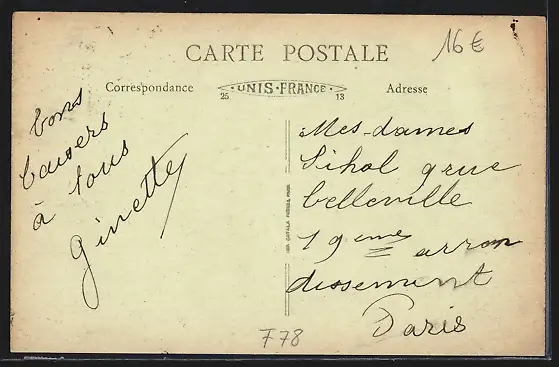 16€
CARTE POSTALE
Correspondance
UNIS-FRANCE
25
13
Adresse
bons
baisers
à tous
Ginette
Mes-dames
Sihol 9 rue
belleville
19eme arron
dissement
Paris
F78